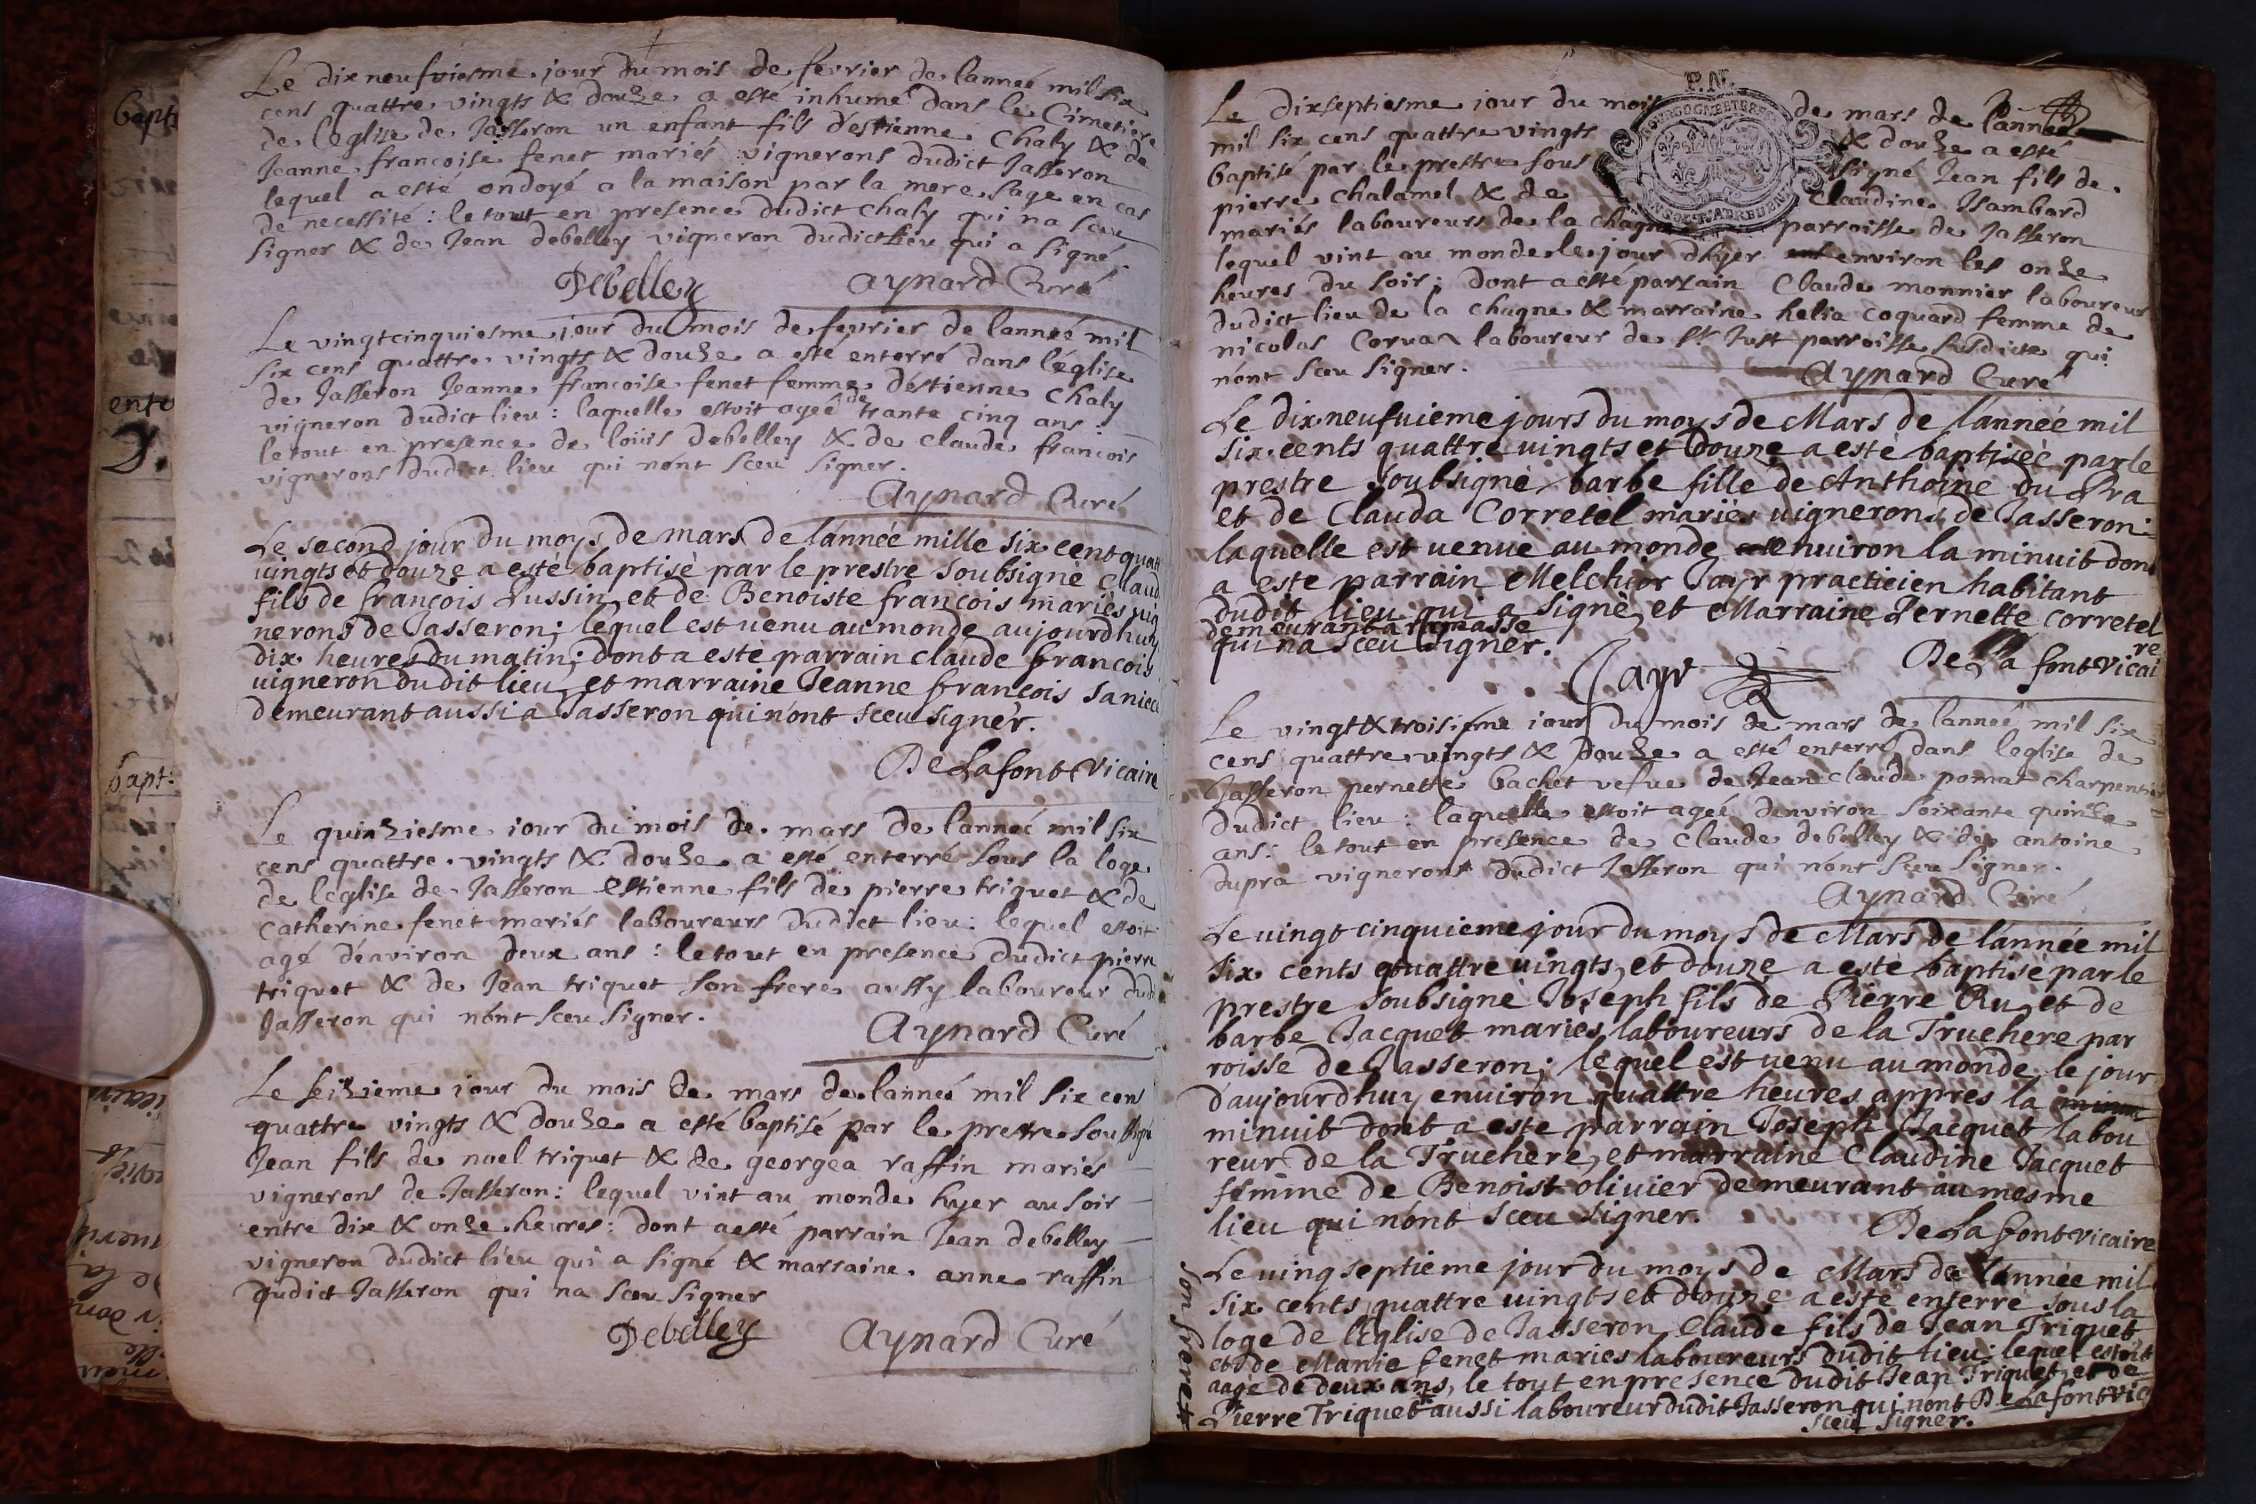 Le dixneufviesme jour du mois de fevrier de lanneé mil six
cens quattre vingts & douze a esté inhumé dans le Cimetiere
de leglise de Jasseron un enfant fils destienne Chaly & de
Jeanne francoise fenet mariés vignerons dudict Jasseron
lequel a esté ondoyé a la maison par la mere sage en cas
de necessité : le tout en presence dudict Chaly qui na sceu
signer & de Jean debelley vigneron dudict lieu qui a signé
Debelley aynard Curé
Le vingtcinquiesme jour du mois de fevrier de lanneé mil
six cens quattre vingts & douze a esté enterré dans léglise
de Jasseron Jeanne francoise fenet femme déstienne Chaly
vigneron dudict lieu : laquelle estoit ageé de trante cinq ans :
le tout en presence de loüis debelley & de claude françois
vignerons dudict lieu qui nónt sceu signer.
Aynard Curé
Le second jour du moys de mars de lánnée mille six cent quatt
uingts et douze a esté baptisè par le prestre soubsignè Claud
fils de françois Lussin et de Benoiste françois mariès uig
nerons de Jasseron ; lequel est uenu au monde aujourdhuy
dix heures du matin ; dont a esté parrain claude françois
uigneron du dit lieu, et marraine Jeanne françois
demeurant aussi a Jasseron qui nónt sceu signér.
De Lafont Vicaire
Le quinziesme jour du mois de mars de lanneé mil six
cens quattre vingts & douze a esté enterré sous la loge
de leglise de Jasseron estienne fils de pierre triquet & de
catherine fenet mariés laboureurs dudict lieu : lequel estoit
agé dénviron deux ans : le tout en presence dudict pierre
triquet & de Jean triquet son frere aussy laboureur dud
Jasseron qui nónt sceu signer.
Aynard Curé
Le seizieme jour du mois de mars de lanneé mil six cens
quattre vingts & douze a esté baptisé par le prettre soubsigné
Jean fils de noel triquet & de georgea raffin mariés
vignerons de Jasseron : lequel vint au monde hyer au soir
entre dix & onze heures : dont a esté parrain Jean debelley
vigneron dudict lieu qui a signé & marraine anne raffin
dudict Jasseron qui na sceu signer
Debelley Aynard Curé
Le dixseptiesme jour du mois de mars de lanneé
mil six cens quattre vingts & douze a esté
baptisé par le prestre sous signé Jean fils de
pierre Chalamel & de Claudine Isambard
mariés laboureurs de la Chagne parroisse de Jasseron
lequel vint au monde le jour dhyer environ les onze
heures du soir ; dont a esté parrain Claude monnier laboureur
dudict lieu de la chagne & marraine helia coquard femme de
nicolas Corvan laboureur de st Just parroisse susdicte qui
nónt sceu signer.
Aynard Curé
Le dixneufuieme jours du moys de Mars de lánnée mil
six cents quattre uingts et douze a esté baptisèe par le
prestre soubsignè barbe fille de Anthoine du Pra
et de Clauda Corretel mariès uignerons de Jasseron :
laquelle est uenue au monde enuiron la minuit dont
a este parrain Melchior Jayr practicien habitant
dudit lieu qui a signè, et Marraine Pernette Corretel
demeurant a
qui na sceu signér.
Jayr De La font Vicaire
Le vingt & troisiéme jour du mois de mars de lanneé mil six
cens quattre vingts & douze a esté enterré dans leglise de
Jasseron pernette bachet vefue de Jean claude pomat charpentier
dudict lieu : laquelle estoit ageé denviron soixante quinze
ans : le tout en presence de claude debelley & de antoine
dupra vignerons dudict Jasseron qui nónt sceu signer.
Aynard Curé
Le uingt cinquieme jour du moys de Mars de lánnée mil
six cents quattre uingts, et douze a esté baptisé par le
prestre soubsignè Joseph fils de Pierre Ru, et de
barbe Jacquet mariès laboureurs de la Truchere par
roisse de Jasseron ; lequel est uenu au monde le jour
dáujourdhuy enuirón quattre heures appres la
minuit dont a este parrain Joseph Jacquet labou
reur de la Truchere, et marraine Claudine Jacquet
femme de Benoist oliuier demeurant au mesme
lieu qui nónt sceu signer.
De La font vicaire
Le uing septieme jour du moys de Mars de lánnée mil
six cents quattre uingts et douze a esté enterré sous la
loge de lEglise de Jasseron Claude fils de Jean Triquet
et de Marie fenet maries laboureurs dudit lieu : lequel estoit
aagé de deux ans, le tout en presence dudit Jean Triquet, et de
Pierre Triquet aussi laboureur dudit Jasseron qui nont De Lafont vic
sceu signer.
son frere